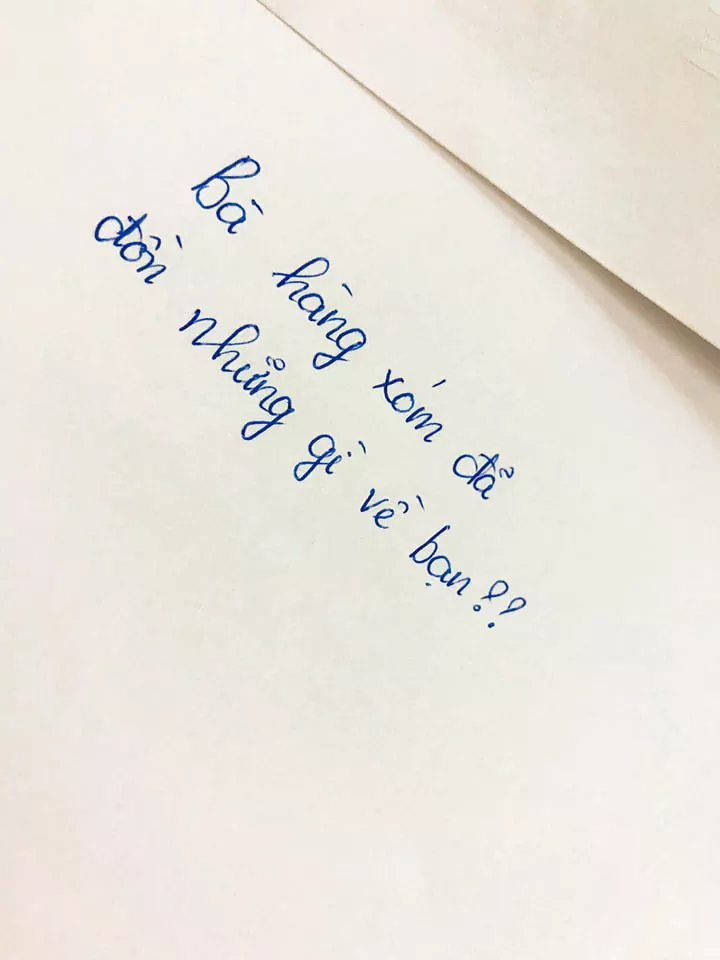 Bà hàng xóm đã
đồn những gì về bạn??